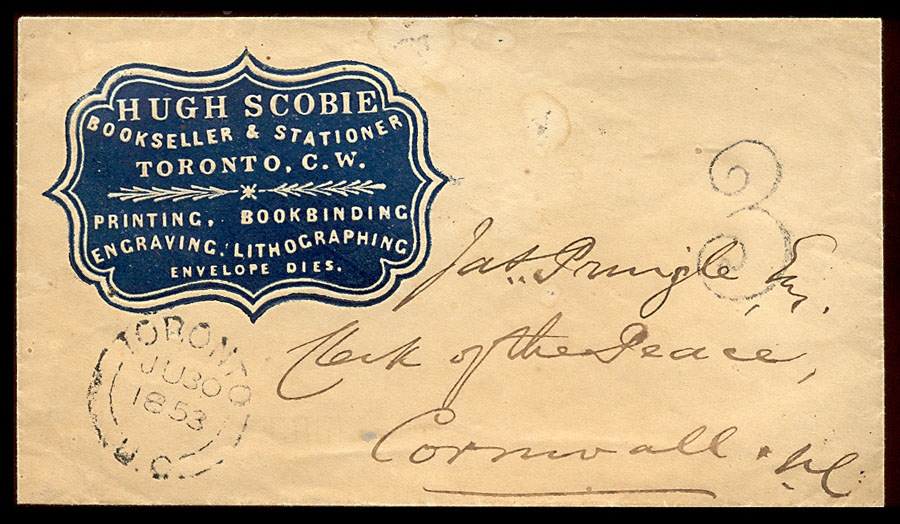 HUGH SCOBIE
BOOKSELLER & STATIONER
TORONTO, C.W.
PRINTING, BOOKBINDING
ENGRAVING, LITHOGRAPHING
ENVELOPE DIES.
3
Jas. Pringle, Esq.
Clerk of the Peace,
Cornwall
TORONTO
JU 30
1853
U.C.